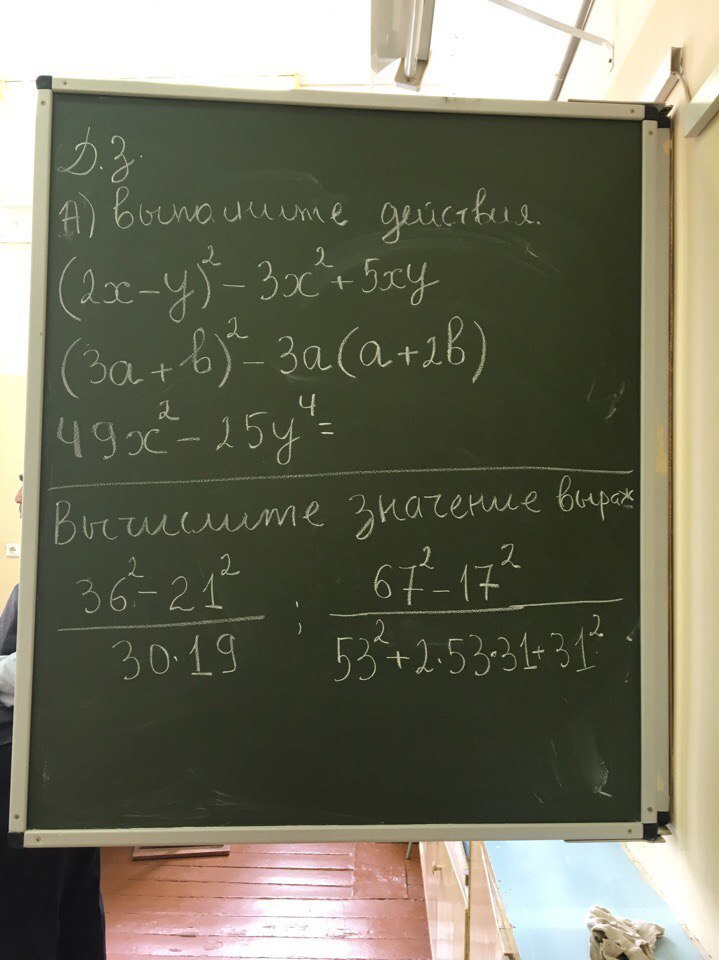 Д.З.
А) выполните действия.
(2x-y)² - 3x² + 5xy
(3a+b)² - 3a(a+2b)
49x² - 25y⁴ =
Вычислите значение выраж
36² - 21² / 30·19 ; 67² - 17² / 53² + 2·53·31 + 31²